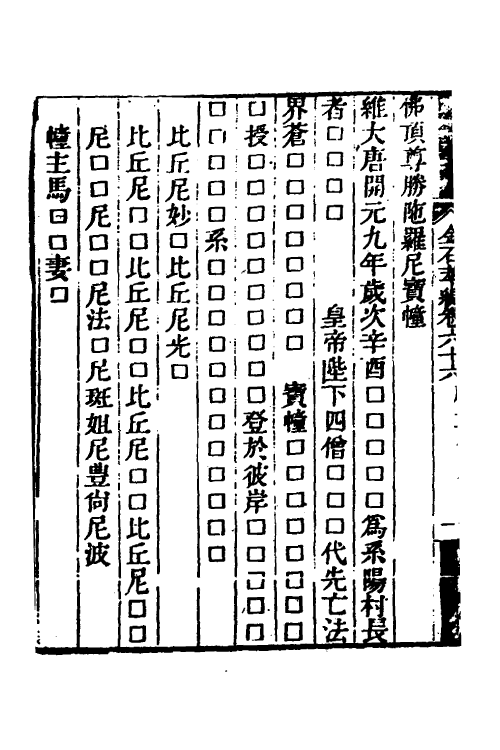 金石萃編卷六十六
佛頂尊勝陁羅尼寶幢
維大唐開元九年歲次辛酉□□□□□爲系陽村長
者□□□□　皇帝陛下四僧□□□代先亡法
界蒼□□□□□□□　寶幢□□□□□□□□
□授□□□□□□□□□登於彼岸□□□□□
□□□□□系□□□□□□□□□□□□
比丘尼妙□比丘尼光□
比丘尼□□比丘尼□□比丘尼□□比丘尼□□
尼□□尼□□尼法□尼斑姐尼豊尙尼波
幢主馬□□妻□